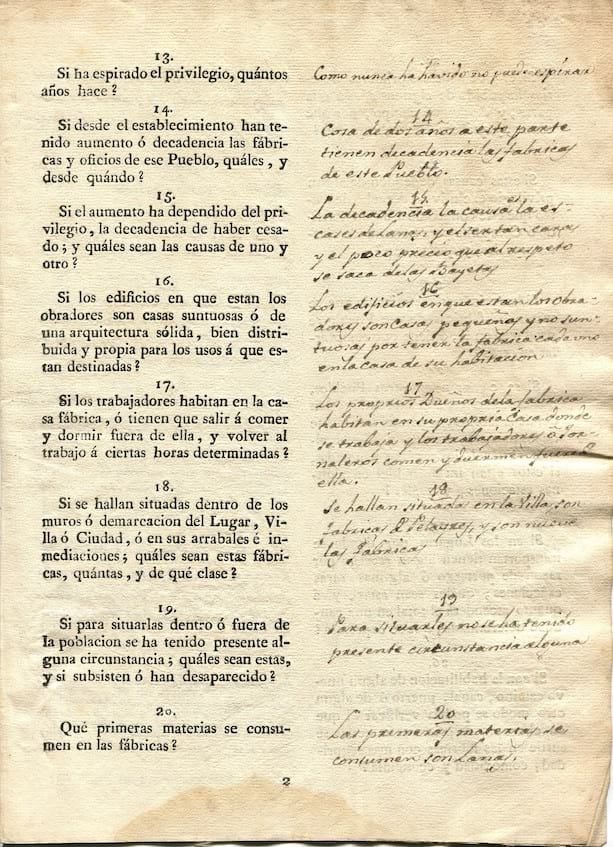 13.
Si ha espirado el privilegio, quántos
años hace?
Como nunca ha havido no puede espirar
14.
Si desde el establecimiento han te-
nido aumento ó decadencia las fábri-
cas y oficios de ese Pueblo, quáles, y
desde quándo?
14
Cosa de dos años a este parte
tienen decadencia las fabricas
de este Pueblo.
15.
Si el aumento ha dependido del pri-
vilegio, la decadencia de haber cesa-
do; y quáles sean las causas de uno y
otro?
15
La decadencia la causa la es-
cases de lanas, y el ser tan caras
y el poco precio que al respeto
se saca de las Bayetas
16.
Si los edificios en que estan los
obradores son casas suntuosas ó de
una arquitectura sólida, bien distri-
buida y propia para los usos á que es-
tan destinadas?
16
Los edificios en que estan los obra-
dores son casas pequeñas y no sun-
tuosas por tener la fabrica cada uno
en la casa de su habitacion
17.
Si los trabajadores habitan en la ca-
sa fábrica, ó tienen que salir á comer
y dormir fuera de ella, y volver al
trabajo á ciertas horas determinadas?
17
Los proprios Dueños de la fabrica
habitan en su propria Casa donde
se trabaja y los trabajadores ó Jor-
naleros comen y duermen fuera de
ella.
18.
Si se hallan situadas dentro de los
muros ó demarcacion del Lugar, Vi-
lla ó Ciudad, ó en sus arrabales é in-
mediaciones; quáles sean estas fábri-
cas, quántas, y de qué clase?
18
Se hallan situadas en la Villa, son
fabricas de Pelayres, y son nueve
las fabricas
19.
Si para situarlas dentro ó fuera de
la poblacion se ha tenido presente al-
guna circunstancia; quáles sean estas,
y si subsisten ó han desaparecido?
19
Para situarles no se ha tenido
presente circunstancia alguna
20.
Qué primeras materias se consu-
men en las fábricas?
20
Las primeras materias se
consumen son Lanas.
2